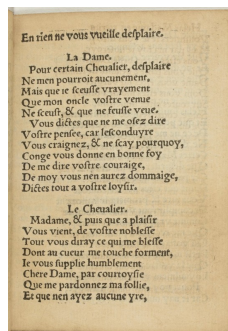 En rien ne vous vueille desplaire.
La Dame.
Pour certain Cheualier, desplaire
Ne men pourroit aucunement,
Mais que ie sceusse vrayement
Que mon oncle vostre venue
Ne sceust, & que ne feusse veue.
Vous dictes que ne me osez dire
Vostre pensee, car lesconduyre
Vous craignez, & ne scay pourquoy,
Conge vous donne en bonne foy
De me dire vostre couraige,
De moy vous nen aurez dommaige,
Dictes tout a vostre loysir.
Le Cheualier.
Madame, & puis que a plaisir
Vous vient, de vostre noblesse
Tout vous diray ce qui me blesse
Dont au cueur me touche forment,
Ie vous supplie humblement
Chere Dame, par courtoysie
Que me pardonnez ma follie,
Et que nen ayez aucune yre,